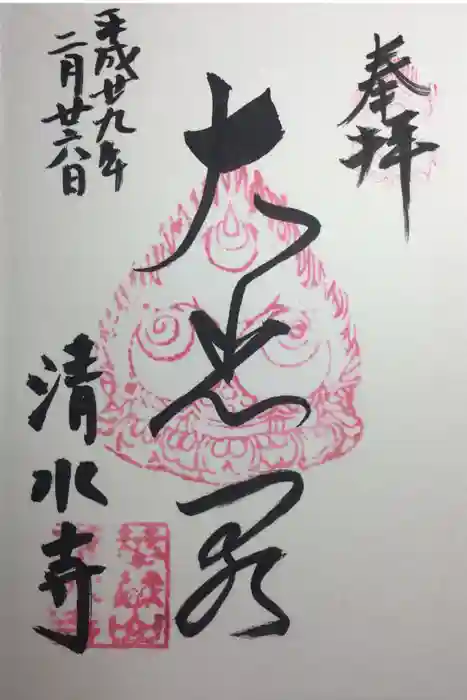 奉拝
大悲閣
平成廿九年
二月廿六日
清水寺